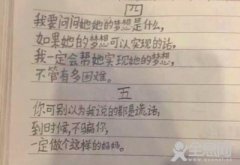 四
我要问问她她的梦想是什么,
如果她的梦想可以实现的话,
我一定会帮她实现她的梦想,
不管有多困难。
五
你可别以为我说的都是谎话,
到时候,不骗你,
一定做个这样的好妈。